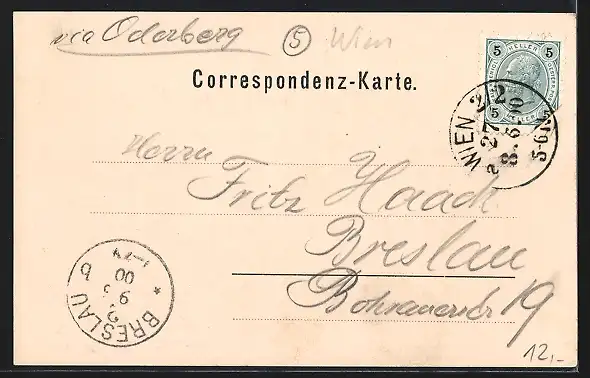 via Oderberg
5 Wien
Correspondenz-Karte.
5 HELLER 5
5
WIEN 2/2
27
8. 6. 00
5-6N
Herrn
Fritz Haack
Breslau
19
BRESLAU
9 6
00
b
12,-